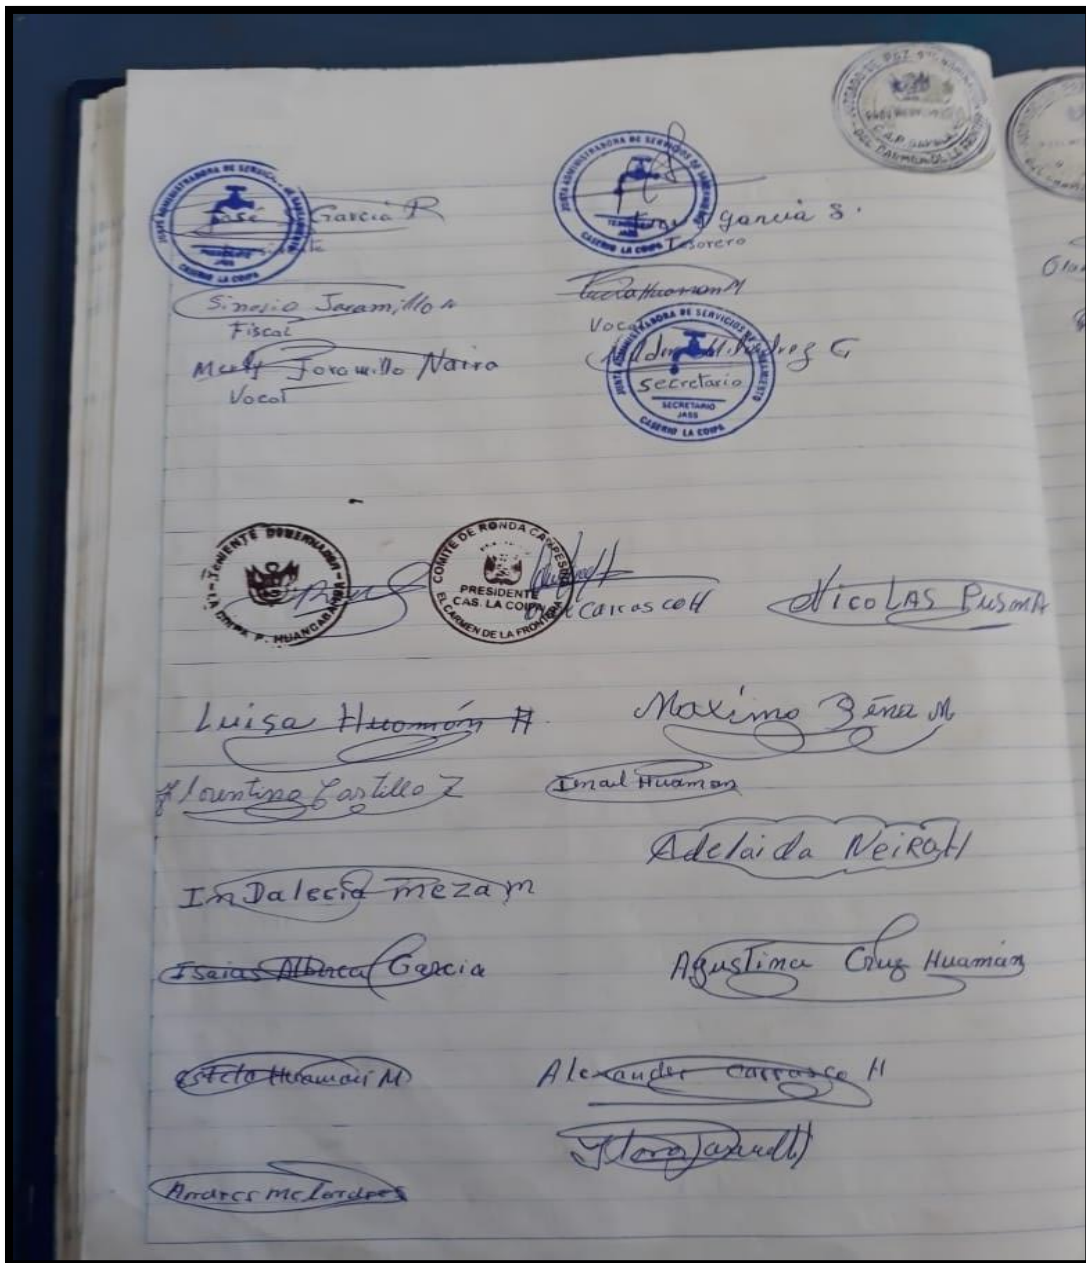 JUZGADO DE PAZ
DEL CARMEN DE LA FRONTERA
JUNTA ADMINISTRADORA DE SERVICIOS DE SANEAMIENTO
José Garcia R
PRESIDENTE
JASS
CASERIO LA COIPA
JUNTA ADMINISTRADORA DE SERVICIOS DE SANEAMIENTO
garcia S.
Tesorero
CASERIO LA COIPA
Sinesio Jaramillo
Fiscal
Huaman M
Vocal
Jaramillo Naira
Vocal
JUNTA ADMINISTRADORA DE SERVICIOS DE SANEAMIENTO
G
Secretario
SECRETARIO
JASS
CASERIO LA COIPA
TENIENTE GOBERNADOR
LA COIPA P. HUANCABAMBA
COMITE DE RONDA CAMPESINA
PRESIDENTE
CAS. LA COIPA
EL CARMEN DE LA FRONTERA
Carrasco H
Nicolas Pusma
Luisa Huamán H.
Maximo M
Florentino Castillo Z
Ismael Huaman
Adelaida Neira H
InDalecia meza m
Isaias Alberca Garcia
Agustina Cruz Huamán
Estela Huaman M
Alexander Carrasco H
Andres melendres